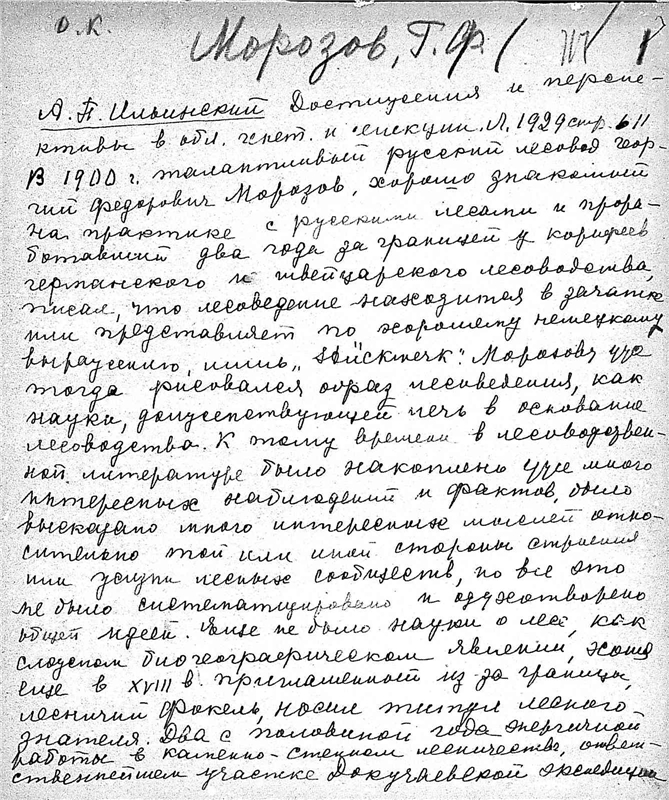 О.К.
Морозов, Г.Ф.
А.П. Ильинский Достижения и перспе-
ктивы в обл. и Л. 1929 стр. 611
В 1900 г. талантливый русский лесовод Геор-
гий Федорович Морозов, хорошо знакомый
на практике с русскими лесами и прора-
ботавший два года за границей у корифеев
германского и швейцарского лесоводства,
писал, что лесоведение находится в зачатке
или представляет по хорошему немецкому
выражению, лишь „ Морозову уже
тогда рисовался образ лесоведения, как
науки, долженствующей лечь в основание
лесоводства. К тому времени в лесоводствен-
ной литературе было накоплено уже много
интересных наблюдений и фактов, было
высказано много интересных мыслей отно-
сительно той или иной стороны строения
или жизни лесных сообществ, но все это
не было систематизировано и одухотворено
общей идеей. Еще не было науки о лесе, как
сложном биогеографическом явлении, хотя
еще в XVIII в. приглашенный из за границы,
лесничий Фокель, носил титул лесного
знателя. Два с половиной года энергичной
работы в каменно-степном лесничестве, ответ-
ственнейшем участке Докучаевской экспедиции